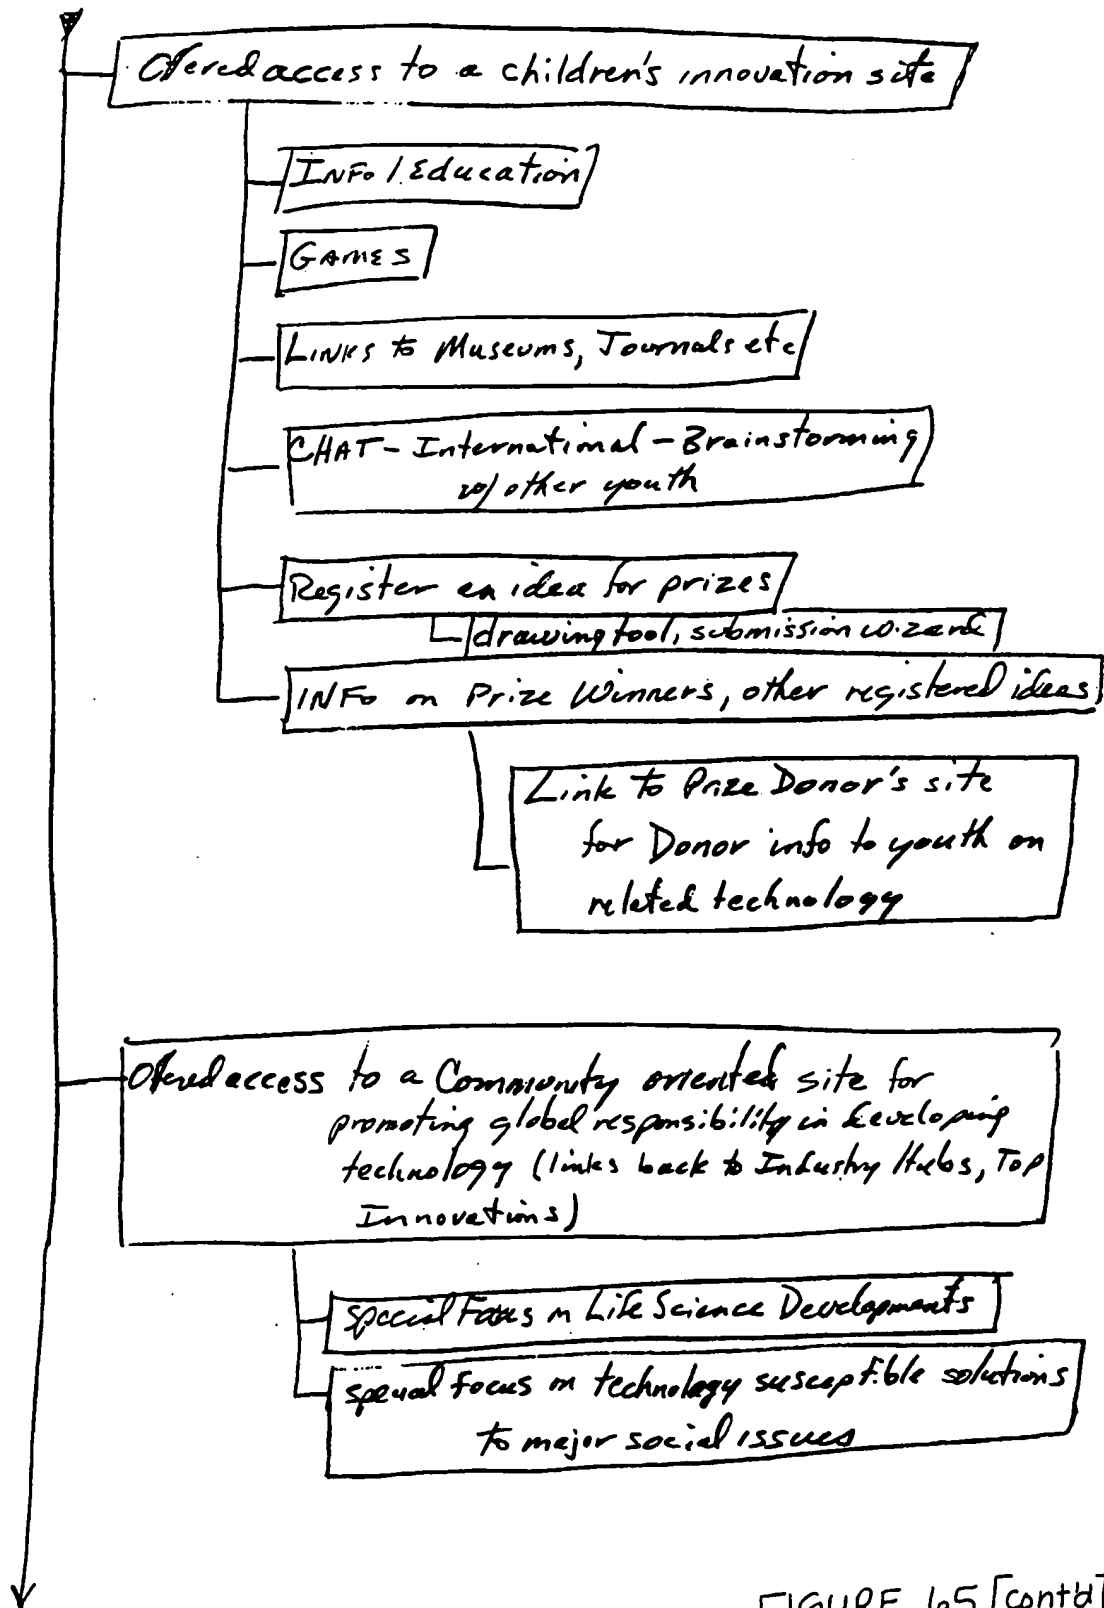 Offered access to a children's innovation site
INFO / Education
GAMES
LINKS to Museums, Journals etc
CHAT - International - Brainstorming
w/ other youth
Register an idea for prizes
drawing tool, submission wizard
INFO on Prize Winners, other registered ideas
Link to Prize Donor's site
for Donor info to youth on
related technology
Offered access to a Community oriented site for
promoting global responsibility in developing
technology (links back to Industry Hubs, Top
Innovations)
Special Focus on Life Science Developments
special focus on technology susceptible solutions
to major social issues
FIGURE 65 [cont'd]